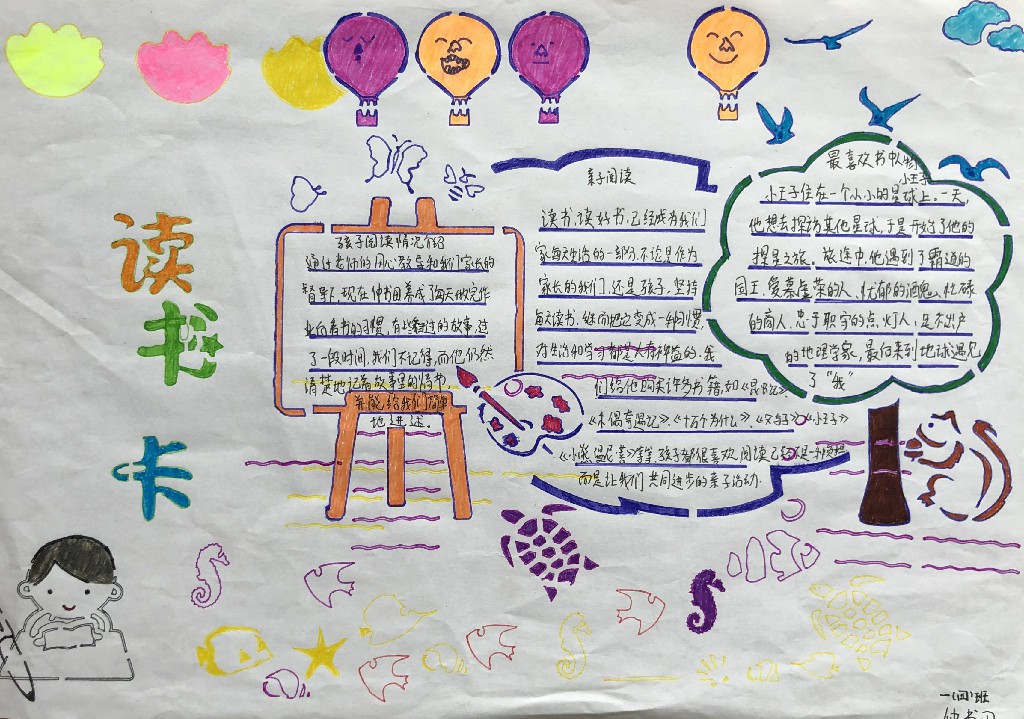 读书卡
孩子阅读情况介绍
通过老师的用心教导和我们家长的
督导下,现在仲书田养成了每天做完作
业向看书的习惯,有些看过的故事,过
了一段时间,我们不记得,而他仍然
清楚地记着故事里的情节,
并能给我们简单
地讲述。
亲子阅读
读书、读好书,已经成为我们
家每天生活的一部分,不论是作为
家长的我们,还是孩子,坚持
每天读书,继而把它变成一种习惯,
对生活和学习都是大有裨益的。我
们给他购买许多书籍,如《昆虫记》、
《木偶奇遇记》、《十万个为什么》、《父与子》《小王子》
等等,孩子都很喜欢,阅读已经不是一种
而是让我们共同进步的亲子活动.
最喜欢书中人物
小王子
小王子住在一个小小的星球上。一天,
他想去探访其他星球,于是开始了他的
星之旅。旅途中,他遇到了霸道的
国王、爱慕虚荣的人、忧郁的酒鬼、忙碌
的商人、忠于职守的点灯人、足不出户
的地理学家。最后来到地球遇见
了"我"
一(四)班
仲书田